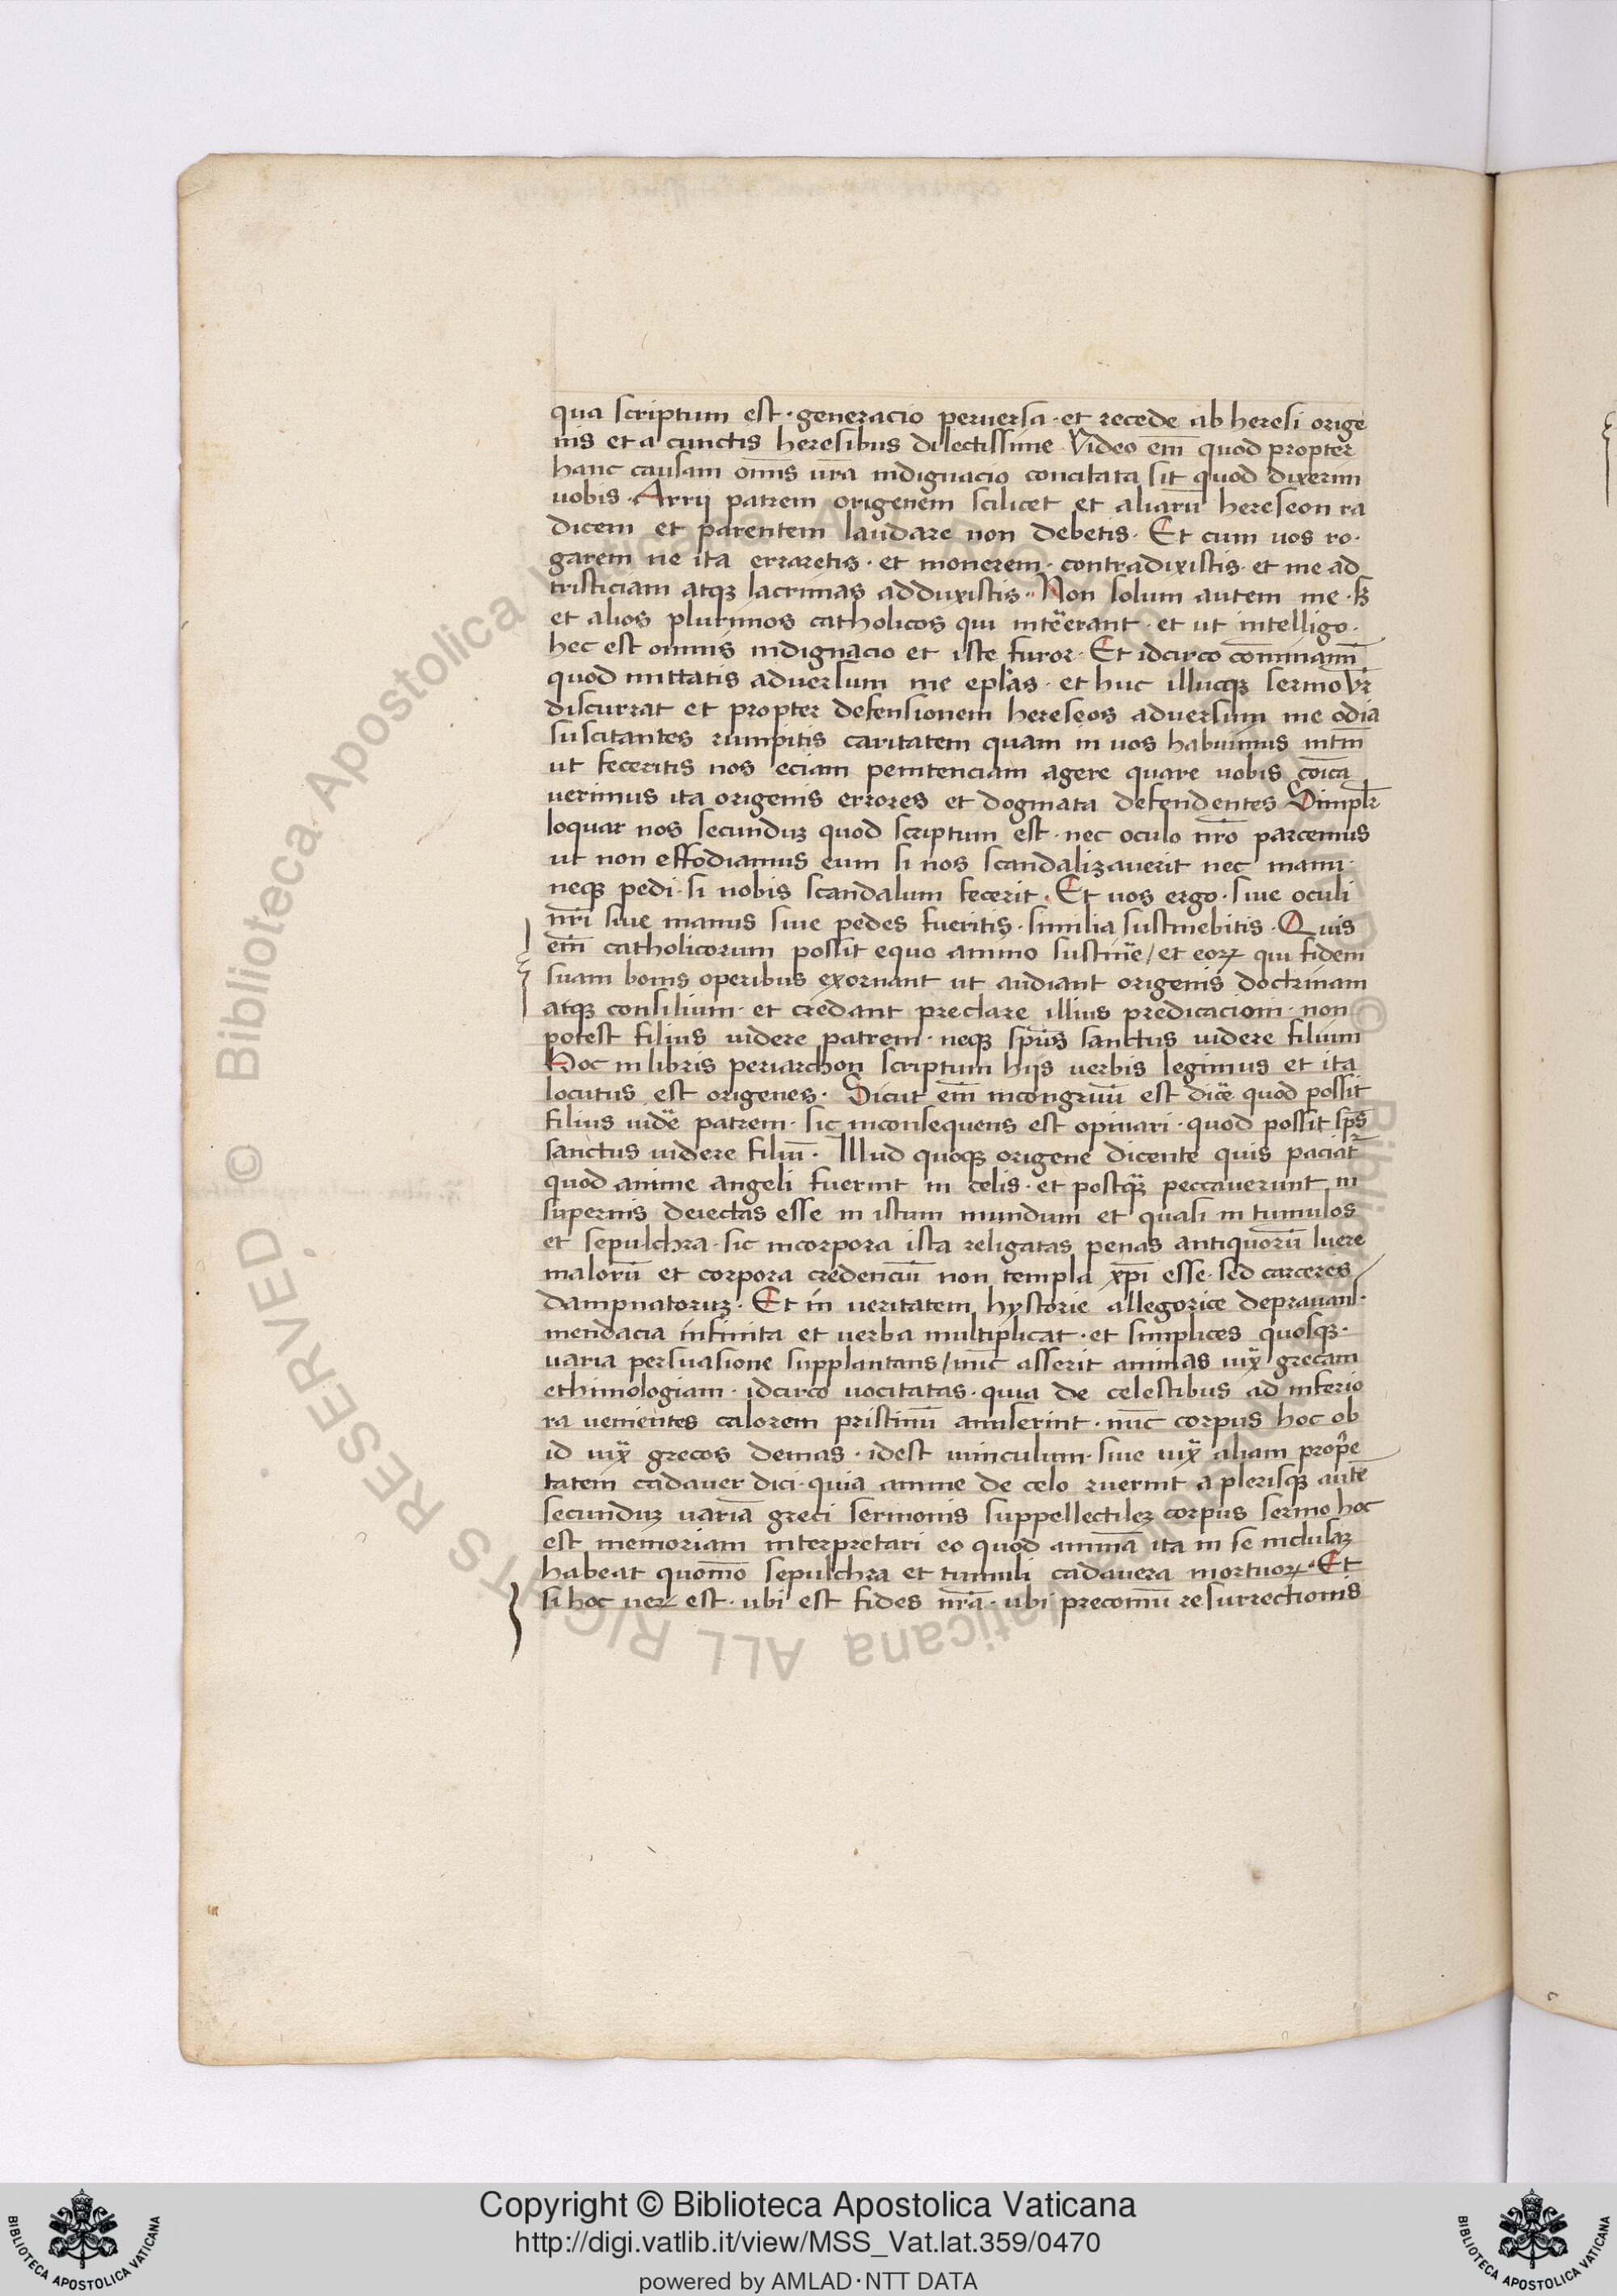 qua scriptum est · generacio peruersa · et recede ab heresi orige
nis et a cunctis heresibus dilectissime Video em̄ quod propter
hanc causam om̄is vr̄a indignacio concitata sit quod dixerim
uobis · Arrij patrem origenem scilicet et aliarū hereseon ra
dicem et parentem laudare non debetis · Et cum uos ro·
garem ne ita erraretis · et monerem · contradixistis · et me ad
tristiciam atqꝫ lacrimas adduxistis · Non solum autem me · sꝫ
et alios plurimos catholicos qui intererant · et ut intelligo ·
hec est omnis indignacio et iste furor · Et idcirco
quod mittatis aduersum me epl̄as · et huc illucqꝫ sermo vr̄
discurrat et propter defensionem hereseos aduersum me odia
suscitantes rumpitis caritatem quam in uos habuimus int̄m
ut feceritis nos eciam penitenciam agere quare uobis cōica
uerimus ita origenis errores et dogmata defendentes Simplr̄
loquar nos secunduꝫ quod scriptum est · nec oculo nr̄o parcemus
ut non effodiamus eum si nos scandalizauerit nec manui ·
neqꝫ pedi · si nobis scandalum fecerit · Et uos ergo · siue oculi
nr̄i siue manus siue pedes fueritis · similia sustinebitis · Quis
em̄ catholicorum possit equo animo sustinē / et eoꝝ qui fidem
suam bonis operibus exornant ut audiant origenis doctrinam
atqꝫ consilium · et credant preclare illius predicacioni · non
potest filius uidere patrem · neqꝫ sp̄us sanctus uidere filium
Hoc in libris periarchon scriptum hijs uerbis legimus et ita
locutus est origenes · Sicut em̄ incongruū est dic̄e quod possit
filius uid̄e patrem · sic inconsequens est opinari · quod possit sp̄s
sanctus uidere filiū · Illud quoqꝫ origene dicente quis paciat̄
quod anime angeli fuerint in celis · et postqꝫ̄ peccauerunt in
supernis deiectas esse in istum mundum et quasi in tumulos
et sepulchra · sic incorpora ista religatas penas antiquorū luere
malorū et corpora credenciū non templa xp̄i esse · sed carceres /
dampnatoruꝫ · Et in ueritatem hystorie allegorice deprauans ·
mendacia infinita et uerba multiplicat · et simplices quosqꝫ ·
uaria persuasione supplantans / nūc asserit animas iuꝟ̄ grecam
ethimologiam · idcirco uocitatas · quia de celestibus ad inferio
ra uenientes calorem pristinū amiserint · nūc corpus hoc ob
id iux̄ grecos demas · idest uinculum · siue iux̄ aliam prop̄e
tatem cadauer dici · quia anime de celo ruerint a plerisqꝫ autē
secunduꝫ uariā greci sermonis suppellectileꝫ corpus sermo hoc
est memoriam interpretari eo quod animā ita in se inclusaꝫ
habeat quom̄o sepulchra et tumuli cadauera mortuoꝝ · Et
si hoc ueꝝ est · ubi est fides nr̄a · ubi preconiū resurrectionis
Copyright © Biblioteca Apostolica Vaticana
http://digi.vatlib.it/view/MSS_Vat.lat.359/0470
powered by AMLAD·NTT DATA
BIBLIOTECA APOSTOLICA VATICANA
BIBLIOTECA APOSTOLICA VATICANA